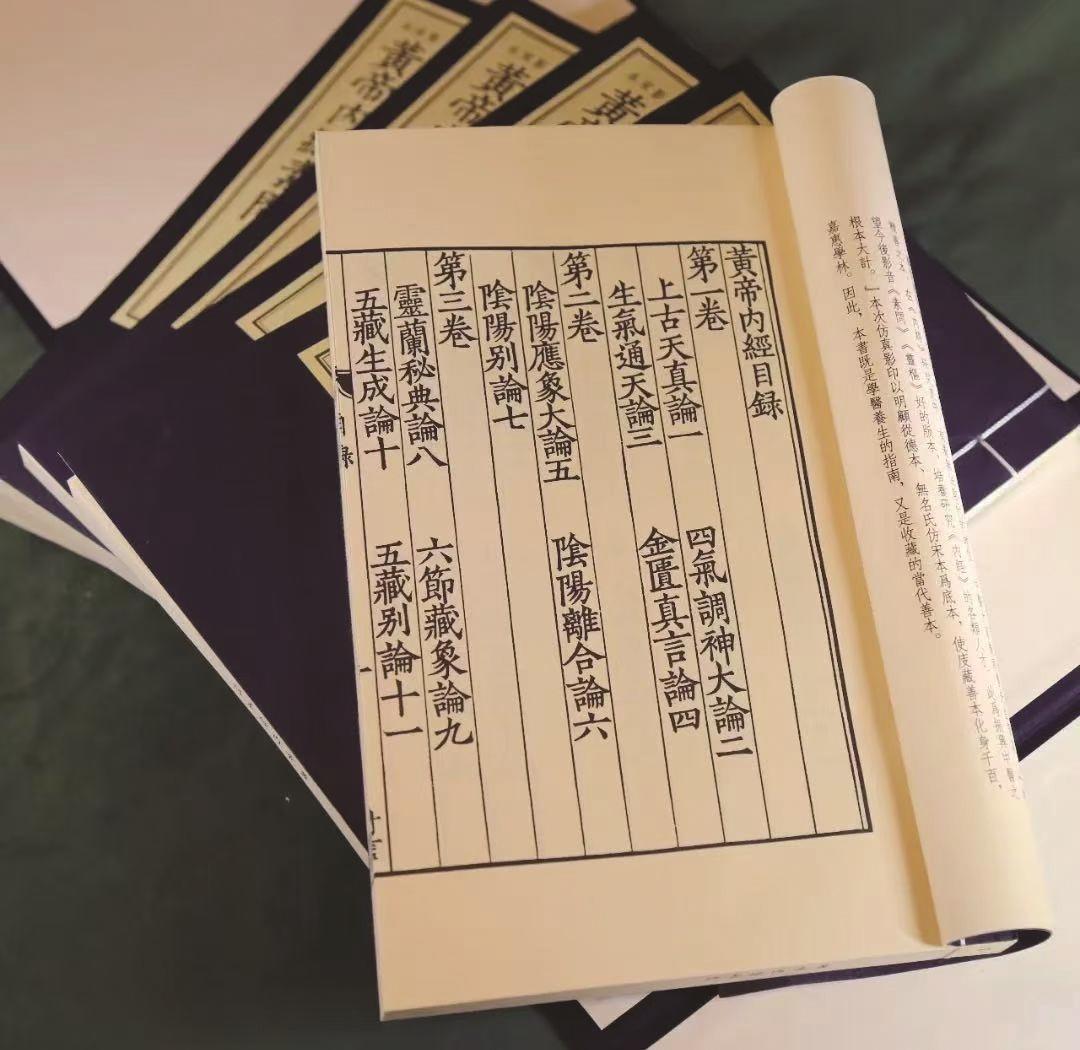 黃帝內經目録
第一卷
上古天真論一
四氣調神大論二
生氣通天論三
金匱真言論四
第二卷
陰陽應象大論五
陰陽離合論六
陰陽别論七
第三卷
靈蘭秘典論八
六節藏象論九
五藏生成論十
五藏别論十一
望今後影音《素問》《靈樞》好的版本，培養研究《內經》的各類人才，
根本大計。』本次仿真影印以明顧從德本、無名氏仿宋本爲底本，使庋藏善本化身千百，
嘉惠學林。因此，本書既是學醫養生的指南，又是收藏的當代善本。
黃帝內
黃帝
黃